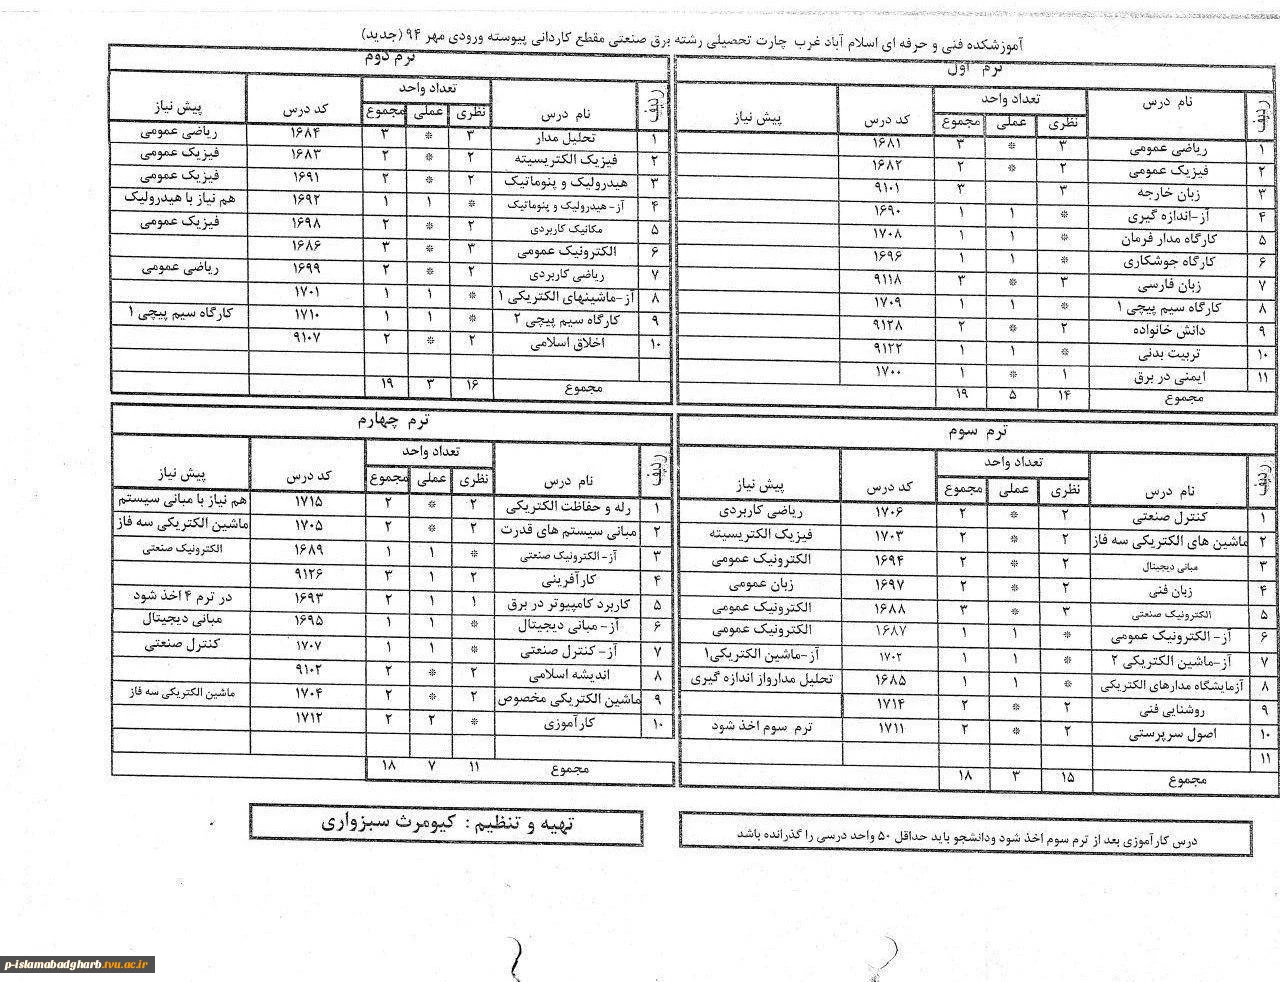 آموزشکده فنی و حرفه ای اسلام آباد غرب چارت تحصیلی رشته برق صنعتی مقطع کاردانی پیوسته ورودی مهر ۹۴ (جدید)
ترم اول
ردیف نام درس تعداد واحد کد درس پیش نیاز
نظری عملی مجموع
۱ ریاضی عمومی ۳ * ۳ ۱۶۸۱
۲ فیزیک عمومی ۲ * ۲ ۱۶۸۲
۳ زبان خارجه ۳ ۳ ۹۱۰۱
۴ آز-اندازه گیری * ۱ ۱ ۱۶۹۰
۵ کارگاه مدار فرمان * ۱ ۱ ۱۷۰۸
۶ کارگاه جوشکاری * ۱ ۱ ۱۶۹۶
۷ زبان فارسی ۳ * ۳ ۹۱۱۸
۸ کارگاه سیم پیچی ۱ * ۱ ۱ ۱۷۰۹
۹ دانش خانواده ۲ * ۲ ۹۱۲۸
۱۰ تربیت بدنی * ۱ ۱ ۹۱۲۲
۱۱ ایمنی در برق ۱ * ۱ ۱۷۰۰
مجموع ۱۴ ۵ ۱۹
ترم دوم
ردیف نام درس تعداد واحد کد درس پیش نیاز
نظری عملی مجموع
۱ تحلیل مدار ۳ * ۳ ۱۶۸۴ ریاضی عمومی
۲ فیزیک الکتریسیته ۲ * ۲ ۱۶۸۳ فیزیک عمومی
۳ هیدرولیک و پنوماتیک ۲ * ۲ ۱۶۹۱ فیزیک عمومی
۴ آز- هیدرولیک و پنوماتیک * ۱ ۱ ۱۶۹۲ هم نیاز با هیدرولیک
۵ مکانیک کاربردی ۲ * ۲ ۱۶۹۸ فیزیک عمومی
۶ الکترونیک عمومی ۳ * ۳ ۱۶۸۶
۷ ریاضی کاربردی ۲ * ۲ ۱۶۹۹ ریاضی عمومی
۸ آز-ماشینهای الکتریکی ۱ * ۱ ۱ ۱۷۰۱
۹ کارگاه سیم پیچی ۲ * ۱ ۱ ۱۷۱۰ کارگاه سیم پیچی ۱
۱۰ اخلاق اسلامی ۲ * ۲ ۹۱۰۷
مجموع ۱۶ ۳ ۱۹
ترم سوم
ردیف نام درس تعداد واحد کد درس پیش نیاز
نظری عملی مجموع
۱ کنترل صنعتی ۲ * ۲ ۱۷۰۶ ریاضی کاربردی
۲ ماشین های الکتریکی سه فاز ۲ * ۲ ۱۷۰۳ فیزیک الکتریسیته
۳ مبانی دیجیتال ۲ * ۲ ۱۶۹۴ الکترونیک عمومی
۴ زبان فنی ۲ * ۲ ۱۶۹۷ زبان عمومی
۵ الکترونیک صنعتی ۳ * ۳ ۱۶۸۸ الکترونیک عمومی
۶ آز- الکترونیک عمومی * ۱ ۱ ۱۶۸۷ الکترونیک عمومی
۷ آز-ماشین الکتریکی ۲ * ۱ ۱ ۱۷۰۲ آز-ماشین الکتریکی۱
۸ آزمایشگاه مدارهای الکتریکی * ۱ ۱ ۱۶۸۵ تحلیل مدارواز اندازه گیری
۹ روشنایی فنی ۲ * ۲ ۱۷۱۴
۱۰ اصول سرپرستی ۲ * ۲ ۱۷۱۱ ترم سوم اخذ شود
۱۱
مجموع ۱۵ ۳ ۱۸
ترم چهارم
ردیف نام درس تعداد واحد کد درس پیش نیاز
نظری عملی مجموع
۱ رله و حفاظت الکتریکی ۲ * ۲ ۱۷۱۵ هم نیاز با مبانی سیستم
۲ مبانی سیستم های قدرت ۲ * ۲ ۱۷۰۵ ماشین الکتریکی سه فاز
۳ آز- الکترونیک صنعتی * ۱ ۱ ۱۶۸۹ الکترونیک صنعتی
۴ کارآفرینی ۲ ۱ ۳ ۹۱۲۶
۵ کاربرد کامپیوتر در برق ۱ ۱ ۲ ۱۶۹۳ در ترم ۴ اخذ شود
۶ آز- مبانی دیجیتال * ۱ ۱ ۱۶۹۵ مبانی دیجیتال
۷ آز- کنترل صنعتی * ۱ ۱ ۱۷۰۷ کنترل صنعتی
۸ اندیشه اسلامی ۲ * ۲ ۹۱۰۲
۹ ماشین الکتریکی مخصوص ۲ * ۲ ۱۷۰۴ ماشین الکتریکی سه فاز
۱۰ کارآموزی * ۲ ۲ ۱۷۱۲
مجموع ۱۱ ۷ ۱۸
درس کارآموزی بعد از ترم سوم اخذ شود ودانشجو باید حداقل ۵۰ واحد درسی را گذرانده باشد
تهیه و تنظیم : کیومرث سبزواری
p-islamabadgharb.tvu.ac.ir